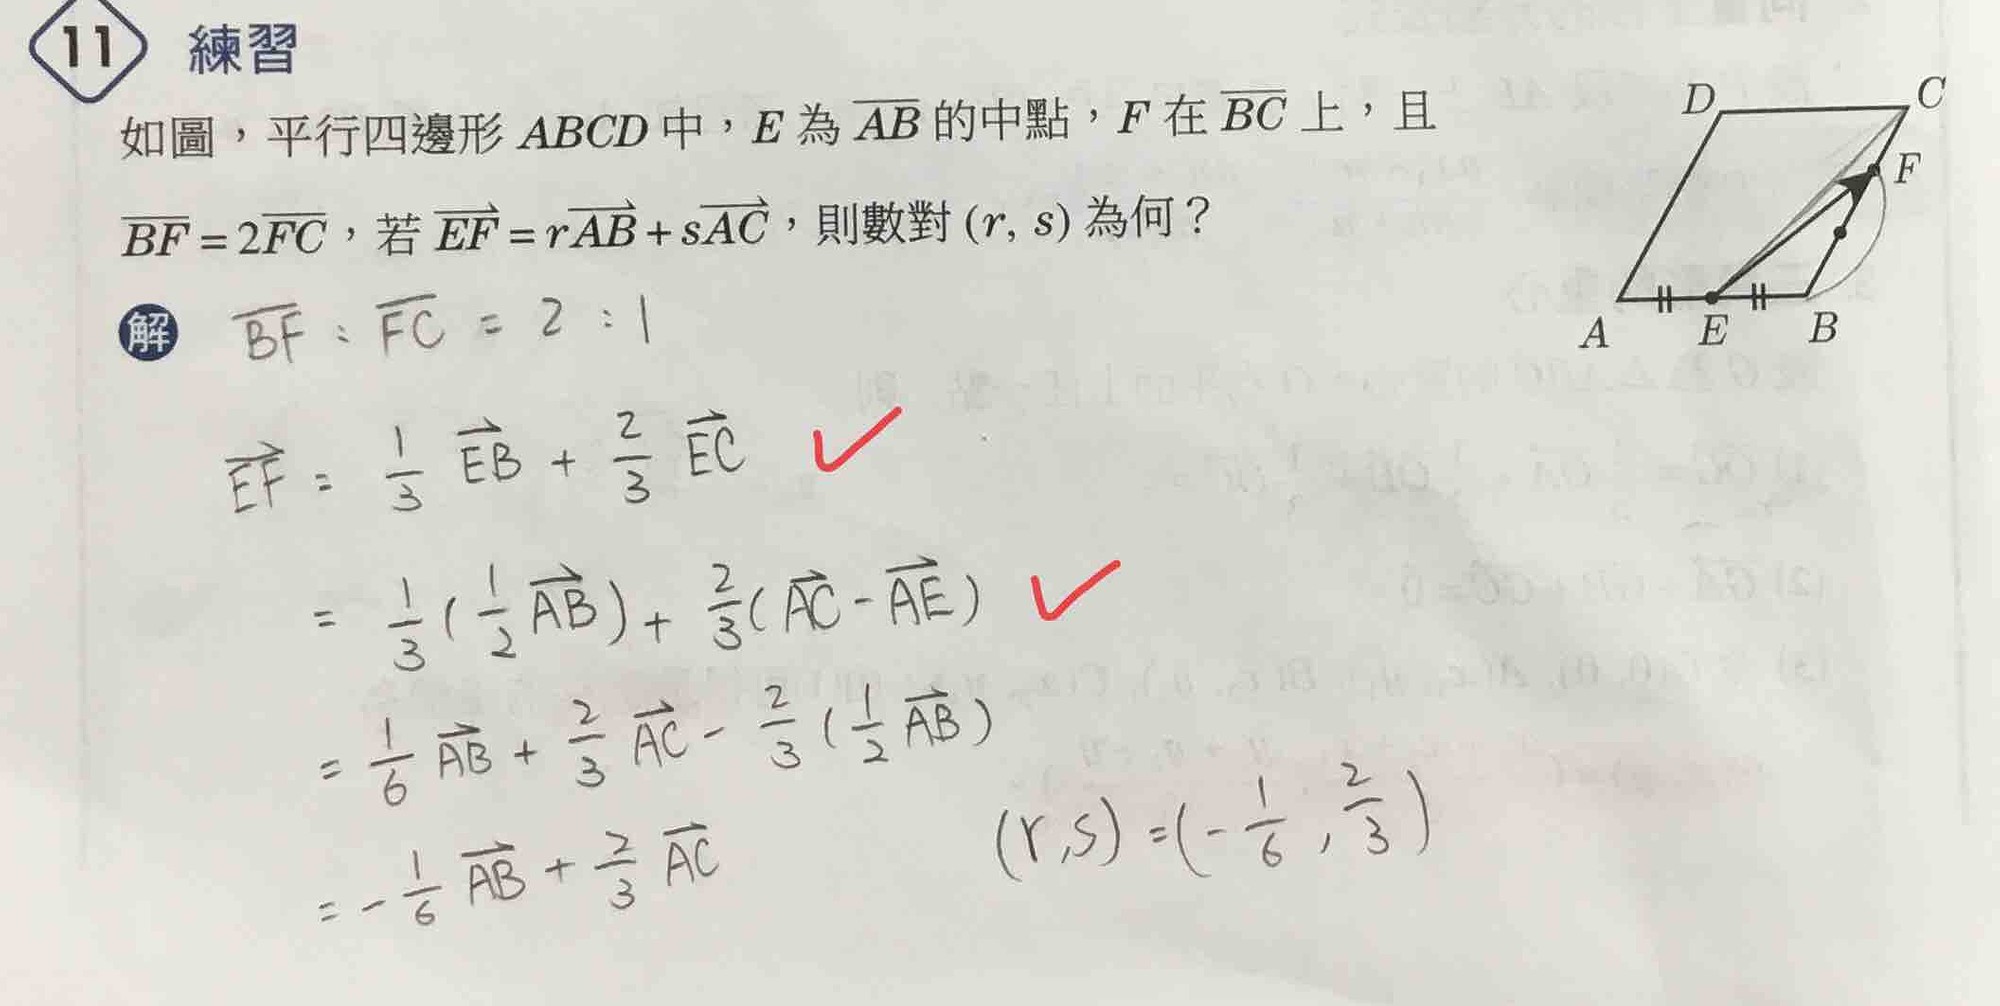 11 練習
如圖，平行四邊形 ABCD 中，E 為 \overline{AB} 的中點，F 在 \overline{BC} 上，且
\overline{BF} = 2\overline{FC}，若 \overrightarrow{EF} = r\overrightarrow{AB} + s\overrightarrow{AC}，則數對 (r, s) 為何？
D C
F
A E B
解 \overline{BF} : \overline{FC} = 2 : 1
\overrightarrow{EF} = \frac{1}{3} \overrightarrow{EB} + \frac{2}{3} \overrightarrow{EC} ✓
= \frac{1}{3} ( \frac{1}{2} \overrightarrow{AB} ) + \frac{2}{3} ( \overrightarrow{AC} - \overrightarrow{AE} ) ✓
= \frac{1}{6} \overrightarrow{AB} + \frac{2}{3} \overrightarrow{AC} - \frac{2}{3} ( \frac{1}{2} \overrightarrow{AB} )
= - \frac{1}{6} \overrightarrow{AB} + \frac{2}{3} \overrightarrow{AC}
(r,s) = ( - \frac{1}{6} , \frac{2}{3} )